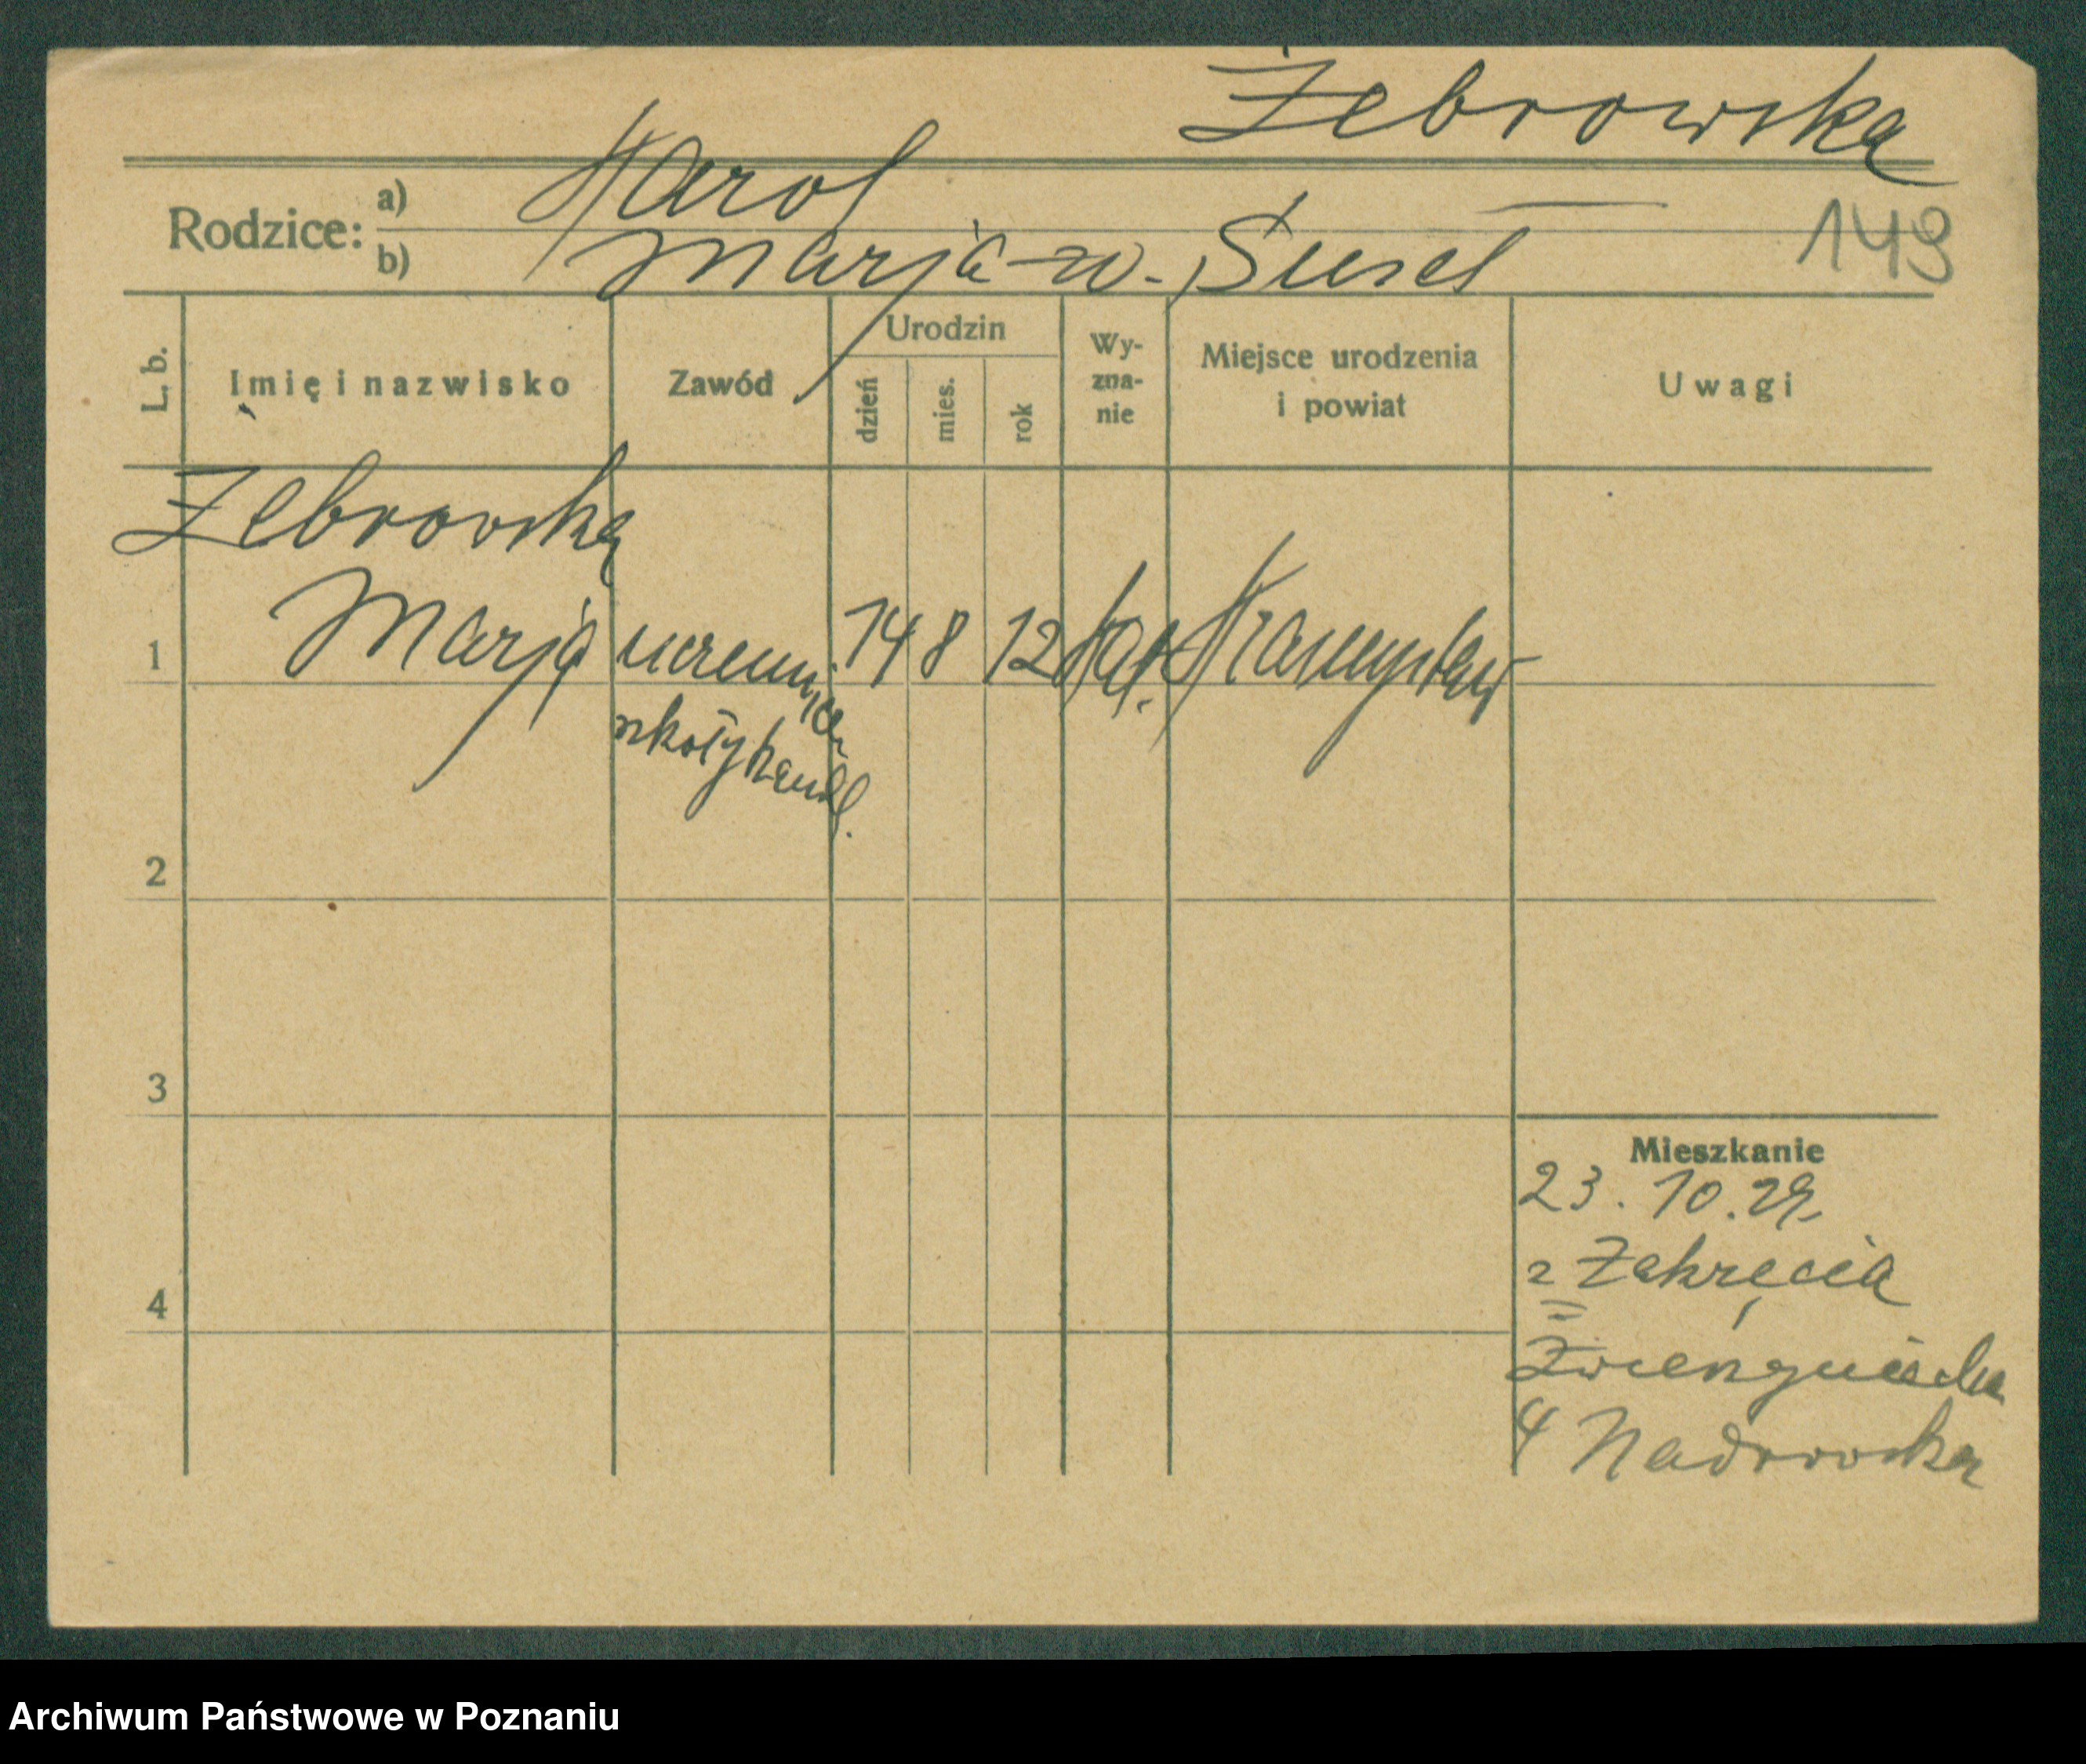 Żebrowska
Rodzice: a) Karol
b) Marja
149
L. b.
Imię i nazwisko
Zawód
Urodzin
dzień
mies.
rok
Wy-
zna-
nie
Miejsce urodzenia
i powiat
Uwagi
Żebrowska
1 Marja uczennica 14 8 12 kat.
szkoły handl.
2
3
4
Mieszkanie
23. 10. 29.
z Zakręcia
4 Nadrowska
Archiwum Państwowe w Poznaniu